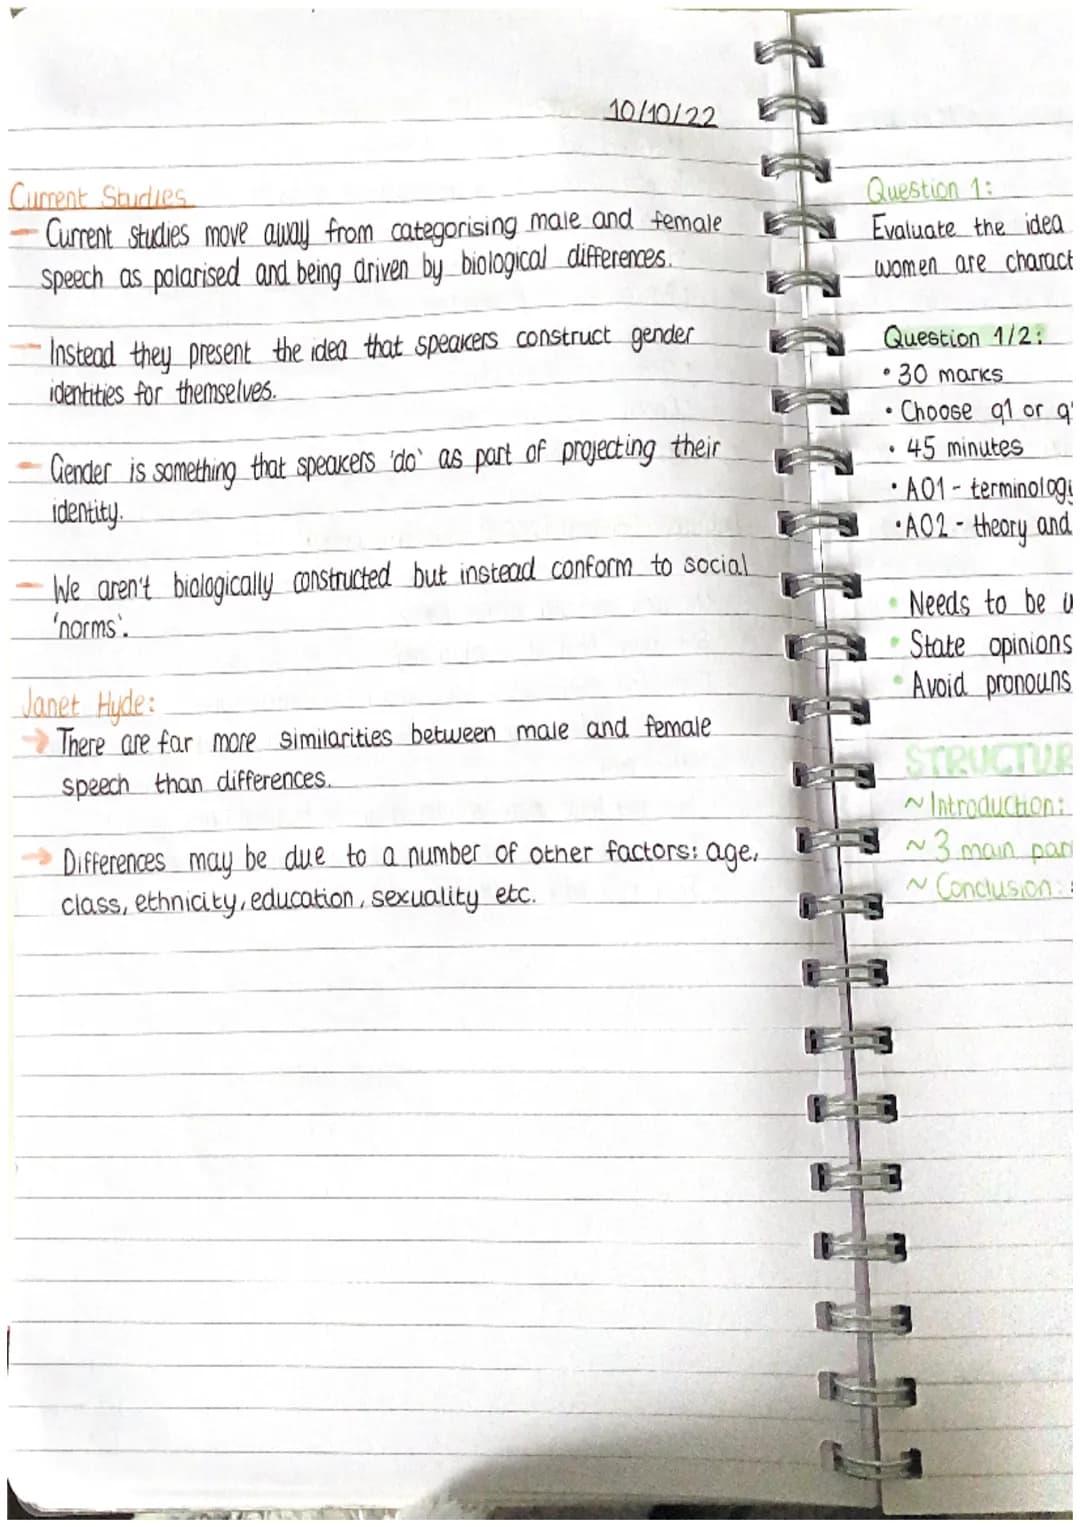 10/10/22
Current Studies
- Current studies move away from categorising male and female
speech as polarised and being driven by biological differences.
- Instead they present the idea that speakers construct gender
identities for themselves.
- Gender is something that speakers 'do' as part of projecting their
identity.
- We aren't biologically constructed but instead conform to social
'norms'.
Janet Hyde:
→ There are far more similarities between male and female
speech than differences.
→ Differences may be due to a number of other factors: age,
class, ethnicity, education, sexuality etc.
Question 1:
Evaluate the idea
women are charact
Question 1/2:
• 30 marks
• Choose q1 or q
• 45 minutes
• AO1 - terminology
• AO2 - theory and
• Needs to be
• State opinions
• Avoid pronouns
STRUCTUR
~ Introduction:
~ 3 main par
~ Conclusion: